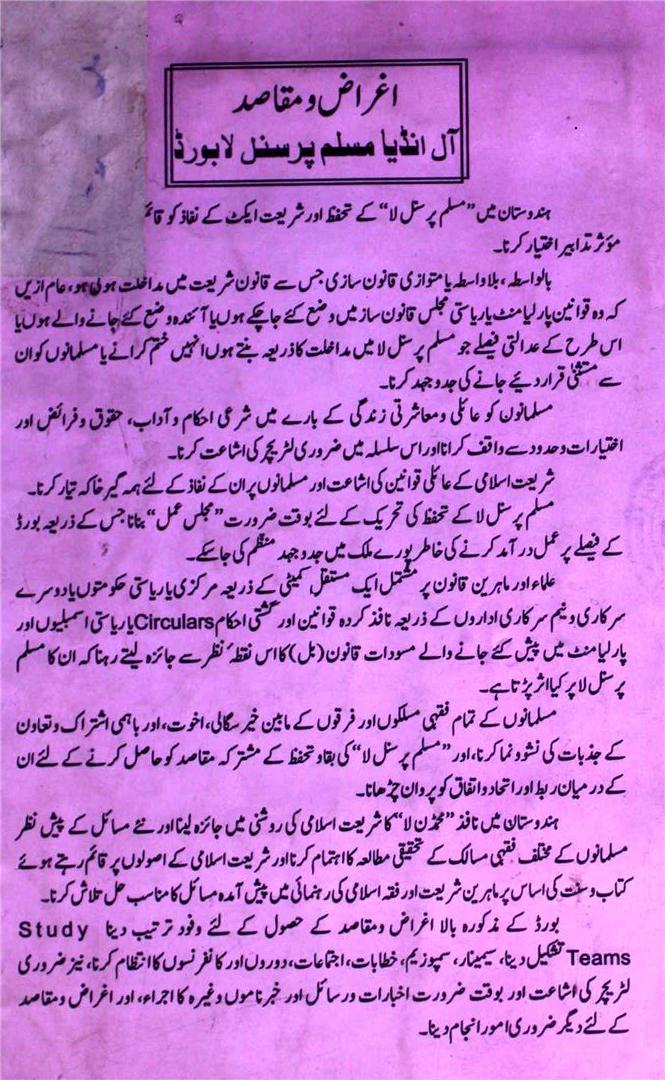 اغراض و مقاصد
آل انڈیا مسلم پرسنل لا بورڈ
ہندوستان میں ”مسلم پرسنل لا“ کے تحفظ اور شریعت ایکٹ کے نفاذ کو قائم
مؤثر تدابیر اختیار کرنا۔
بالواسطہ، بلاواسطہ یا متوازی قانون سازی جس سے قانون شریعت میں مداخلت ہوتی ہو، عام ازیں
کہ وہ قوانین پارلیامنٹ یا ریاستی مجلس قانون ساز میں وضع کئے جاچکے ہوں یا آئندہ وضع کئے جانے والے ہوں یا
اس طرح کے عدالتی فیصلے جو مسلم پرسنل لا میں مداخلت کا ذریعہ بنتے ہوں انہیں ختم کرانے یا مسلمانوں کو ان
سے مستثنیٰ قرار دیئے جانے کی جدوجہد کرنا۔
مسلمانوں کو عائلی و معاشرتی زندگی کے بارے میں شرعی احکام و آداب، حقوق و فرائض اور
اختیارات و حدود سے واقف کرانا اور اس سلسلہ میں ضروری لٹریچر کی اشاعت کرنا۔
شریعت اسلامی کے عائلی قوانین کی اشاعت اور مسلمانوں پر ان کے نفاذ کے لئے ہمہ گیر خاکہ تیار کرنا۔
مسلم پرسنل لا کے تحفظ کی تحریک کے لئے بوقت ضرورت ”مجلس عمل“ بنانا جس کے ذریعہ بورڈ
کے فیصلے پر عمل درآمد کرنے کی خاطر پورے ملک میں جدوجہد منظم کی جاسکے۔
علماء اور ماہرین قانون پر مشتمل ایک مستقل کمیٹی کے ذریعہ مرکزی یا ریاستی حکومتوں یا دوسرے
سرکاری و نیم سرکاری اداروں کے ذریعہ نافذ کردہ قوانین اور گشتی احکام Circulars یا ریاستی اسمبلیوں اور
پارلیامنٹ میں پیش کئے جانے والے مسودات قانون (بل) کا اس نقطۂ نظر سے جائزہ لیتے رہنا کہ ان کا مسلم
پرسنل لا پر کیا اثر پڑتا ہے۔
مسلمانوں کے تمام فقہی مسلکوں اور فرقوں کے مابین خیر سگالی، اخوت، اور باہمی اشتراک و تعاون
کے جذبات کی نشوونما کرنا، اور ”مسلم پرسنل لا“ کی بقا و تحفظ کے مشترکہ مقاصد کو حاصل کرنے کے لئے ان
کے درمیان ربط اور اتحاد و اتفاق کو پروان چڑھانا۔
ہندوستان میں نافذ ”محمڈن لا“ کا شریعت اسلامی کی روشنی میں جائزہ لینا اور نئے مسائل کے پیش نظر
مسلمانوں کے مختلف فقہی مسالک کے تحقیقی مطالعہ کا اہتمام کرنا اور شریعت اسلامی کے اصولوں پر قائم رہتے ہوئے
کتاب و سنت کی اساس پر ماہرین شریعت اور فقہ اسلامی کی رہنمائی میں پیش آمدہ مسائل کا مناسب حل تلاش کرنا۔
بورڈ کے مذکورہ بالا اغراض و مقاصد کے حصول کے لئے وفود ترتیب دینا Study
Teams تشکیل دینا، سیمینار، سمپوزیم، خطابات، اجتماعات، دوروں اور کانفرنسوں کا انتظام کرنا، نیز ضروری
لٹریچر کی اشاعت اور بوقت ضرورت اخبارات و رسائل اور خبرناموں وغیرہ کا اجراء، اور اغراض و مقاصد
کے لئے دیگر ضروری امور انجام دینا۔